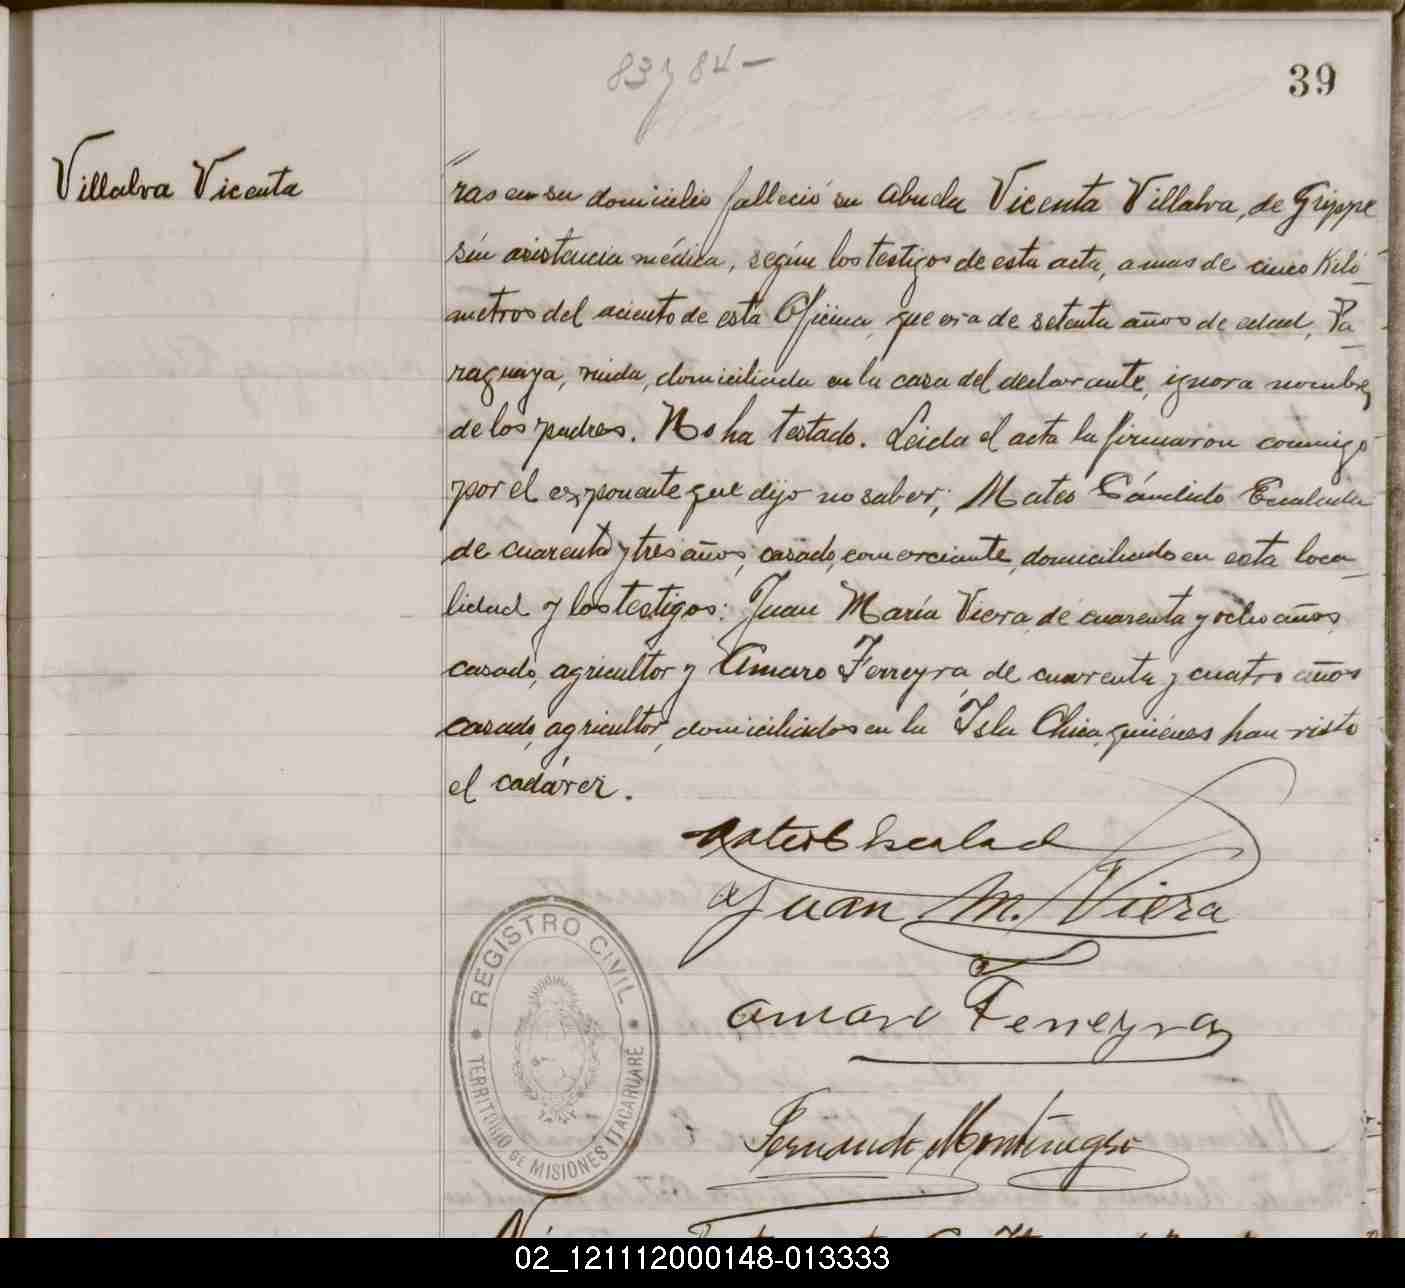 83 y 84 -
39
Villalva Vicenta
ras en su domicilio falleció su abuela Vicenta Villalva, de Grippe
sin asistencia médica, según los testigos de esta acta, a mas de cinco Kiló
metros del aciento de esta Oficina, que era de setenta años de edad, Pa_
raguaya, viuda, domiciliada en la casa del declarante, ignora nombre
de los padres. No ha testado. Leida el acta la firmaron conmigo
por el exponente que dijo no saber; Mateo Cándido Escalada
de cuarenta y tres años, casado, comerciante, domiciliado en esta loca_
lidad y los testigos: Juan María Viera, de cuarenta y ocho años,
casado, agricultor y Amaro Ferreyra de cuarenta y cuatro años
casado, agricultor, domiciliados en la Isla Chica, quiénes han visto
el cadáver.
Mateo C Escalad
Juan M. Viera
amaro Ferreyra
Fernando Montenegro
REGISTRO CIVIL
TERRITORIO DE MISIONES ITACARUARÉ
02_121112000148-013333